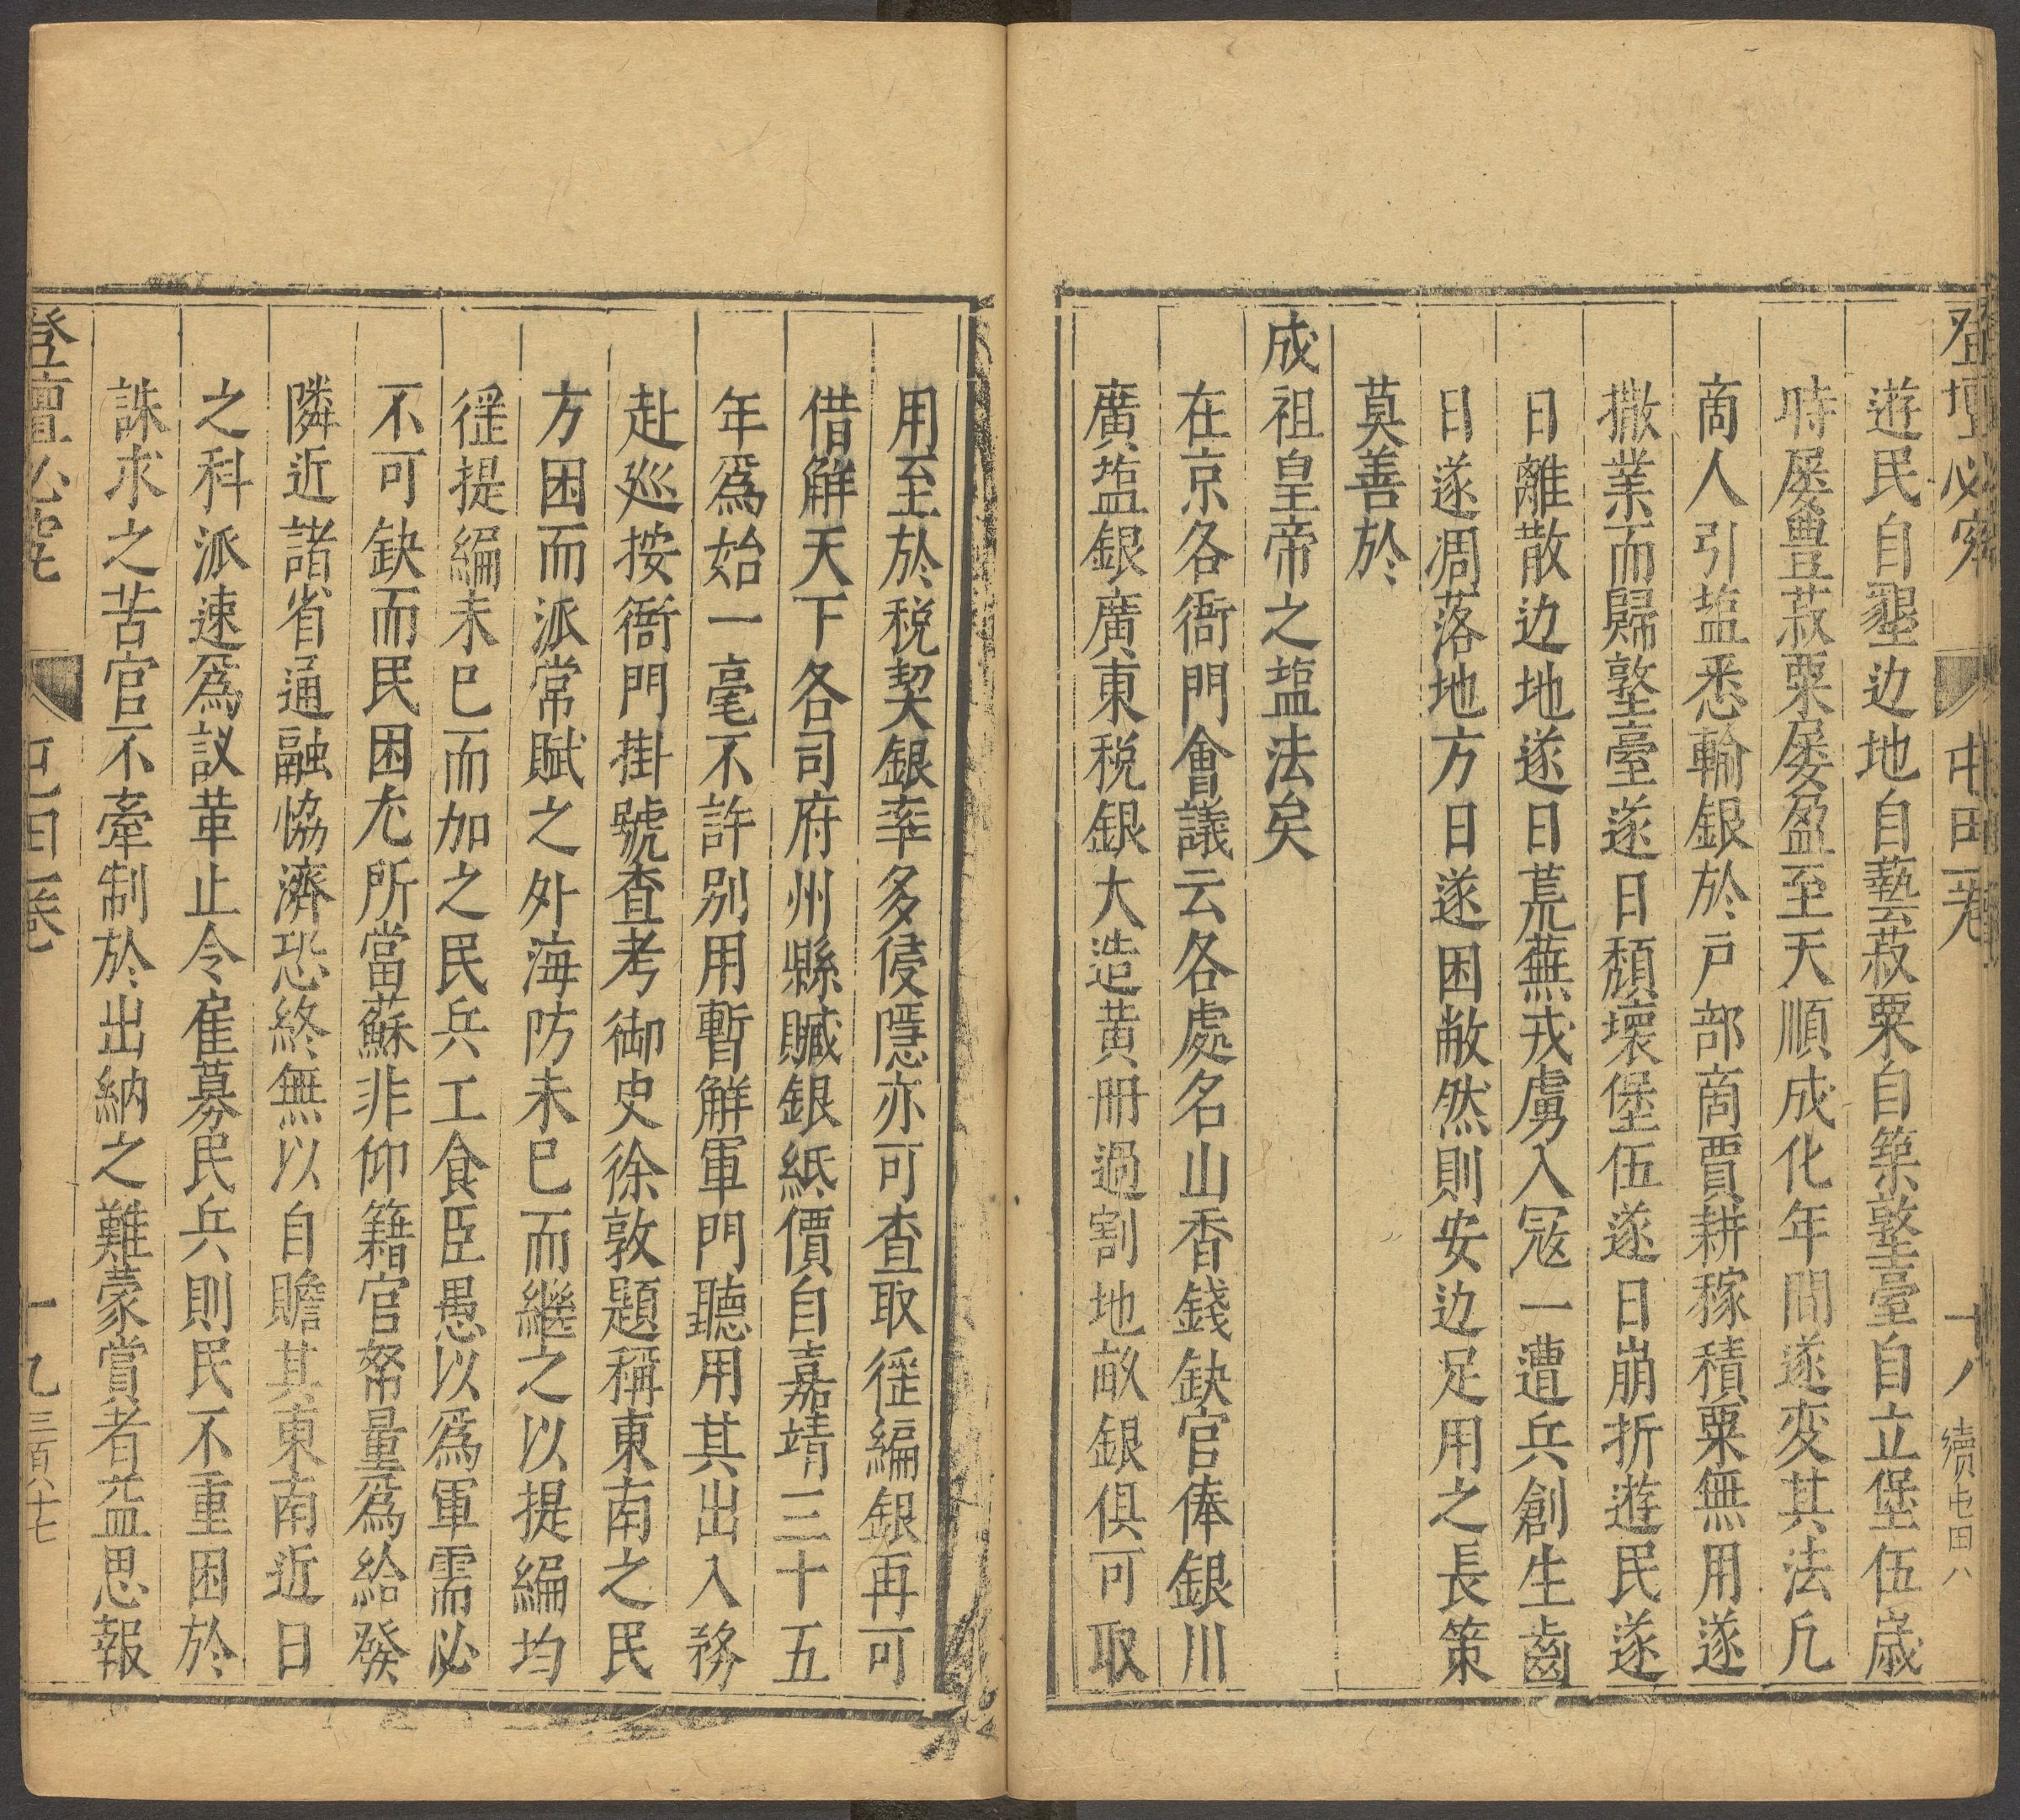 登壇必究 屯田二卷 十八 續屯田八
遊民自墾边地自藝菽粟自築墪臺自立堡伍歳
時屡豊菽粟屡盈至天順成化年間遂変其法凢
商人引塩悉輸銀於戸部商賈耕稼積粟無用遂
撒業而歸墪臺遂日頹壞堡伍遂日崩折遊民遂
日離散边地遂日荒蕪戎虜入冦一遭兵創生齒
日遂凋落地方日遂困敝然則安边足用之長策
莫善於
成祖皇帝之塩法矣
在京各衙門會議云各處名山香錢缺官俸銀川
廣塩銀廣東税銀大造黄冊過割地畝銀俱可取
用至於税契銀率多侵隱亦可查取徭編銀再可
借解天下各司府州縣贓銀紙價自嘉靖三十五
年爲始一毫不許别用暫解軍門聽用其出入務
赴廵按衙門掛號查考御史徐敦題稱東南之民
方困而派常賦之外海防未已而繼之以提編均
徭提編未已而加之民兵工食臣愚以爲軍需必
不可缺而民困尤所當蘇非仰籍官帑量爲給發
隣近諸省通融恊濟恐終無以自贍其東南近日
之科派速爲議革止令雇募民兵則民不重困於
誅求之苦官不牽制於出納之難蒙賞者益思報
登壇必究 屯田二卷 十九 三百八十七